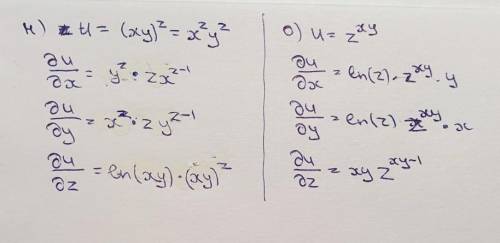 н) u = (xy)^z = x^z y^z
∂u/∂x = y^z · z x^{z-1}
∂u/∂y = x^z · z y^{z-1}
∂u/∂z = ln(xy) · (xy)^z
о) u = z^{xy}
∂u/∂x = ln(z) · z^{xy} · y
∂u/∂y = ln(z) z^{xy} · x
∂u/∂z = xy z^{xy-1}